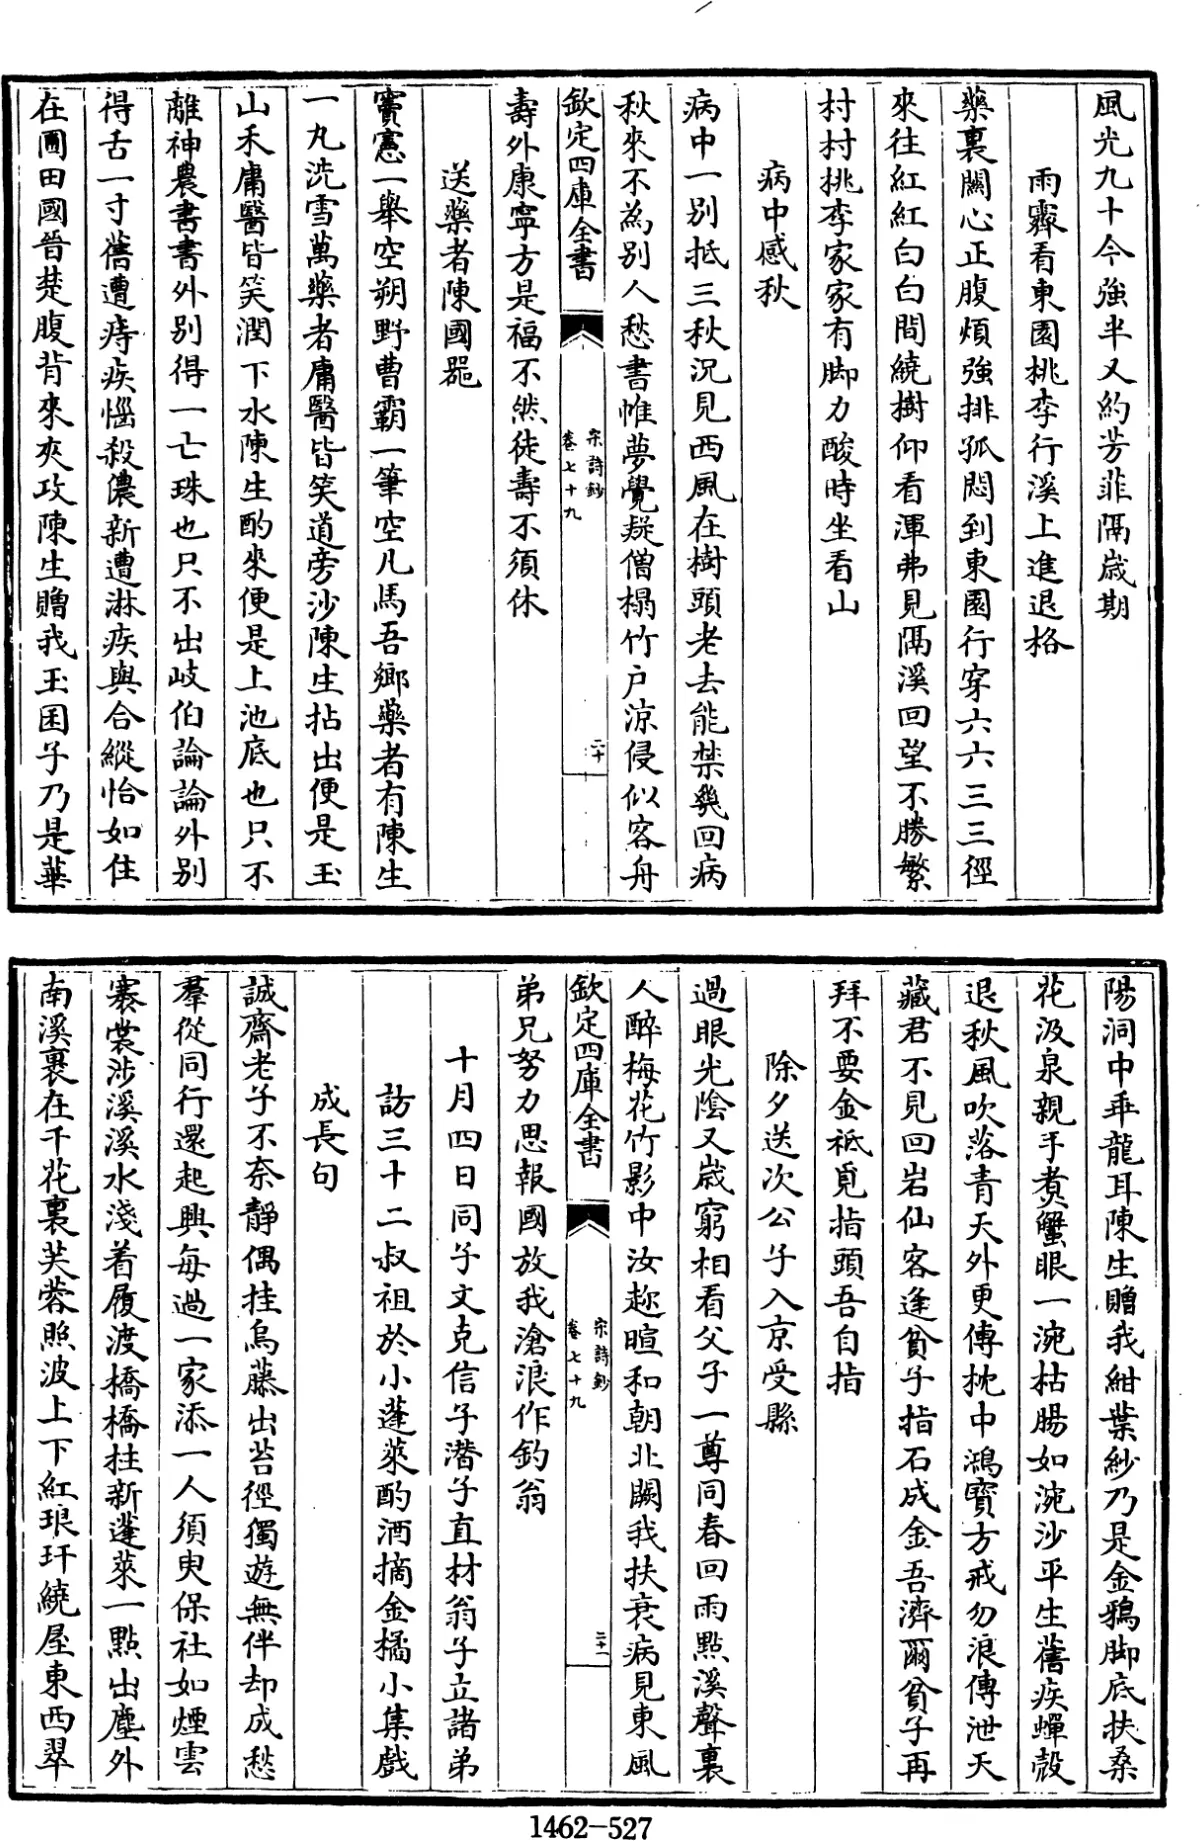 風光九十今強半又約芳菲隔歲期
雨霽看東園桃李行溪上進退格
藥裹闗心正腹煩強排孤悶到東園行穿六六三三徑
來往紅紅白白間繞樹仰看渾弗見隔溪回望不勝繁
村村挑李家家有脚力酸時坐看山
病中感秋
病中一别抵三秋況見西風在樹頭老去能禁幾回病
秋來不為别人愁書帷夢覺疑僧榻竹户涼侵似客舟
欽定四庫全書
宋詩鈔
卷七十九
二十
壽外康寧方是福不然徒壽不須休
送藥者陳國器
竇憲一舉空朔野曹霸一筆空凡馬吾鄉藥者有陳生
一丸洗雪萬藥者庸醫皆笑道旁沙陳生拈出便是玉
山禾庸醫皆笑澗下水陳生酌來便是上池底也只不
離神農書書外别得一亡珠也只不出岐伯論論外别
得舌一寸舊遭痔疾惱殺儂新遭淋疾與合縱恰如住
在圃田國晉楚腹背來夾攻陳生贈我玉囷子乃是華
陽洞中乖龍耳陳生贈我紺葉紗乃是金鴉脚底扶桑
花汲泉親手煮蟹眼一涴枯腸如涴沙平生舊疾蟬殼
退秋風吹落青天外更傳枕中鴻寶方戒勿浪傳泄天
藏君不見回岩仙客逢貧子指石成金吾濟爾貧子再
拜不要金祗覓指頭吾自指
除夕送次公子入京受縣
過眼光陰又歲窮相看父子一尊同春回雨點溪聲裏
人醉梅花竹影中汝趂暄和朝北闕我扶衰病見東風
欽定四庫全書
宋詩鈔
卷七十九
二十一
弟兄努力思報國放我滄浪作釣翁
十月四日同子文克信子潛子直材翁子立諸弟
訪三十二叔祖於小蓬萊酌酒摘金橘小集戲
成長句
誠齋老子不奈靜偶挂烏藤出苔徑獨遊無伴却成愁
羣從同行還起興每過一家添一人須臾保社如煙雲
褰裳涉溪溪水淺着屐渡橋橋柱新蓬萊一點出塵外
南溪裹在千花裏芙蓉照波上下紅琅玕繞屋東西翠
1462-527